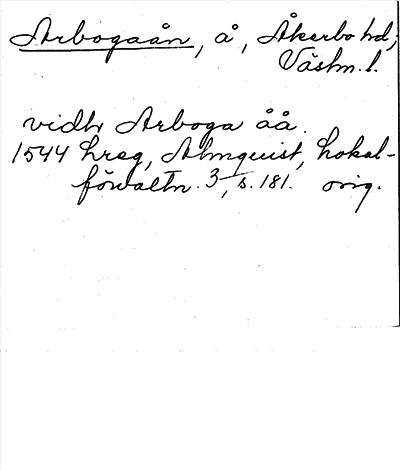 Arbogaån, å, Åkerbo hd,
Västm. l.
vidh Arboga åå.
1544 hreg, Almquist, Lokal-
förvaltn. 3, s. 181. orig.